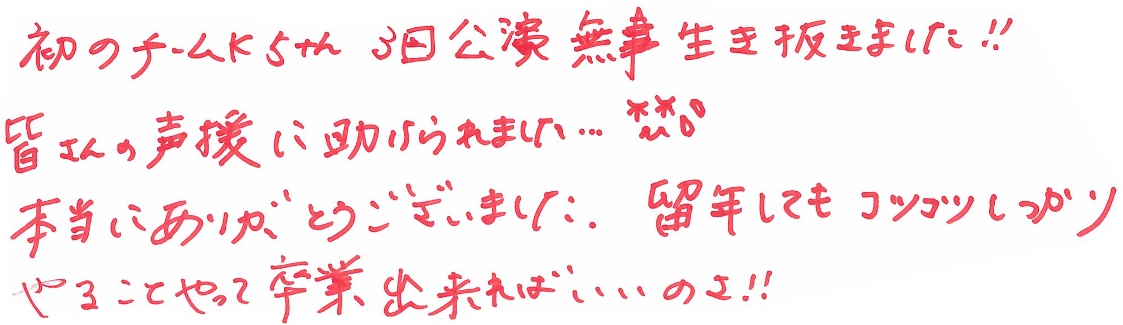 初のチームK5th 3回公演無事生き抜きました!!
皆さんの声援に助けられました…
本当にありがとうございました。留年してもコツコツしっかり
やることやって卒業出来ればいいのさ!!